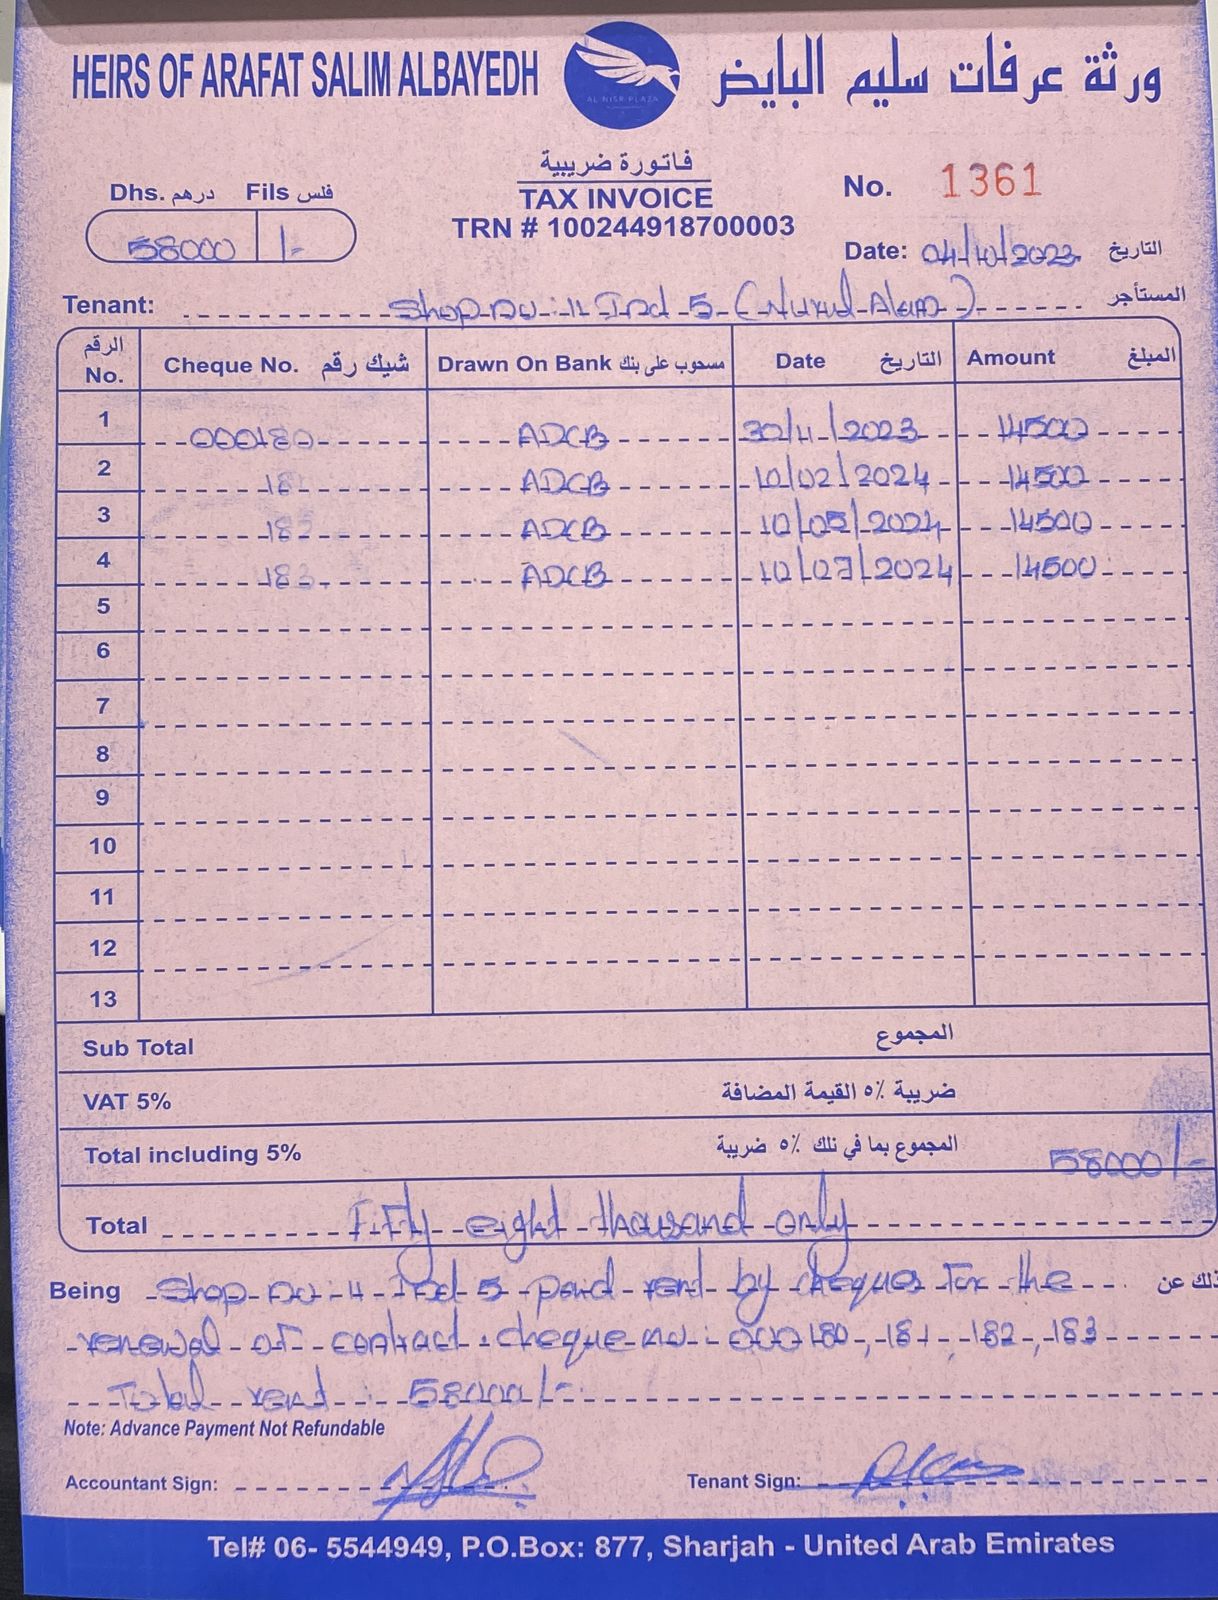 HEIRS OF ARAFAT SALIM ALBAYEDH
AL NISR PLAZA
ورثة عرفات سليم البايض
فاتورة ضريبية
TAX INVOICE
TRN # 100244918700003
No. 1361
Dhs. درهم Fils فلس
58000 /-
Date: 04/10/2023 التاريخ
Tenant: Shop no: 11 Ind 5 (Nurul Alam) المستأجر
الرقم No. Cheque No. شيك رقم Drawn On Bank مسحوب على بنك Date التاريخ Amount المبلغ
1 000180 ADCB 30/11/2023 14500
2 18 ADCB 10/02/2024 14500
3 182 ADCB 10/05/2024 14500
4 183 ADCB 10/07/2024 14500
5
6
7
8
9
10
11
12
13
Sub Total المجموع
VAT 5% ضريبة ٥٪ القيمة المضافة
Total including 5% المجموع بما في تلك ٥٪ ضريبة 58000/-
Total Fifty eight thousand only
Being Shop no: 11 Ind 5 paid rent by cheques for the ذلك عن
renewal of contract. cheque no: 000180, 181, 182, 183
Total rent: 58000/-
Note: Advance Payment Not Refundable
Accountant Sign: Tenant Sign:
Tel# 06- 5544949, P.O.Box: 877, Sharjah - United Arab Emirates